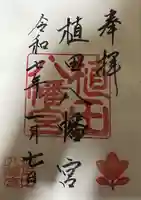 奉拝
植田八幡宮
令和七年一月七日
植田
八幡宮